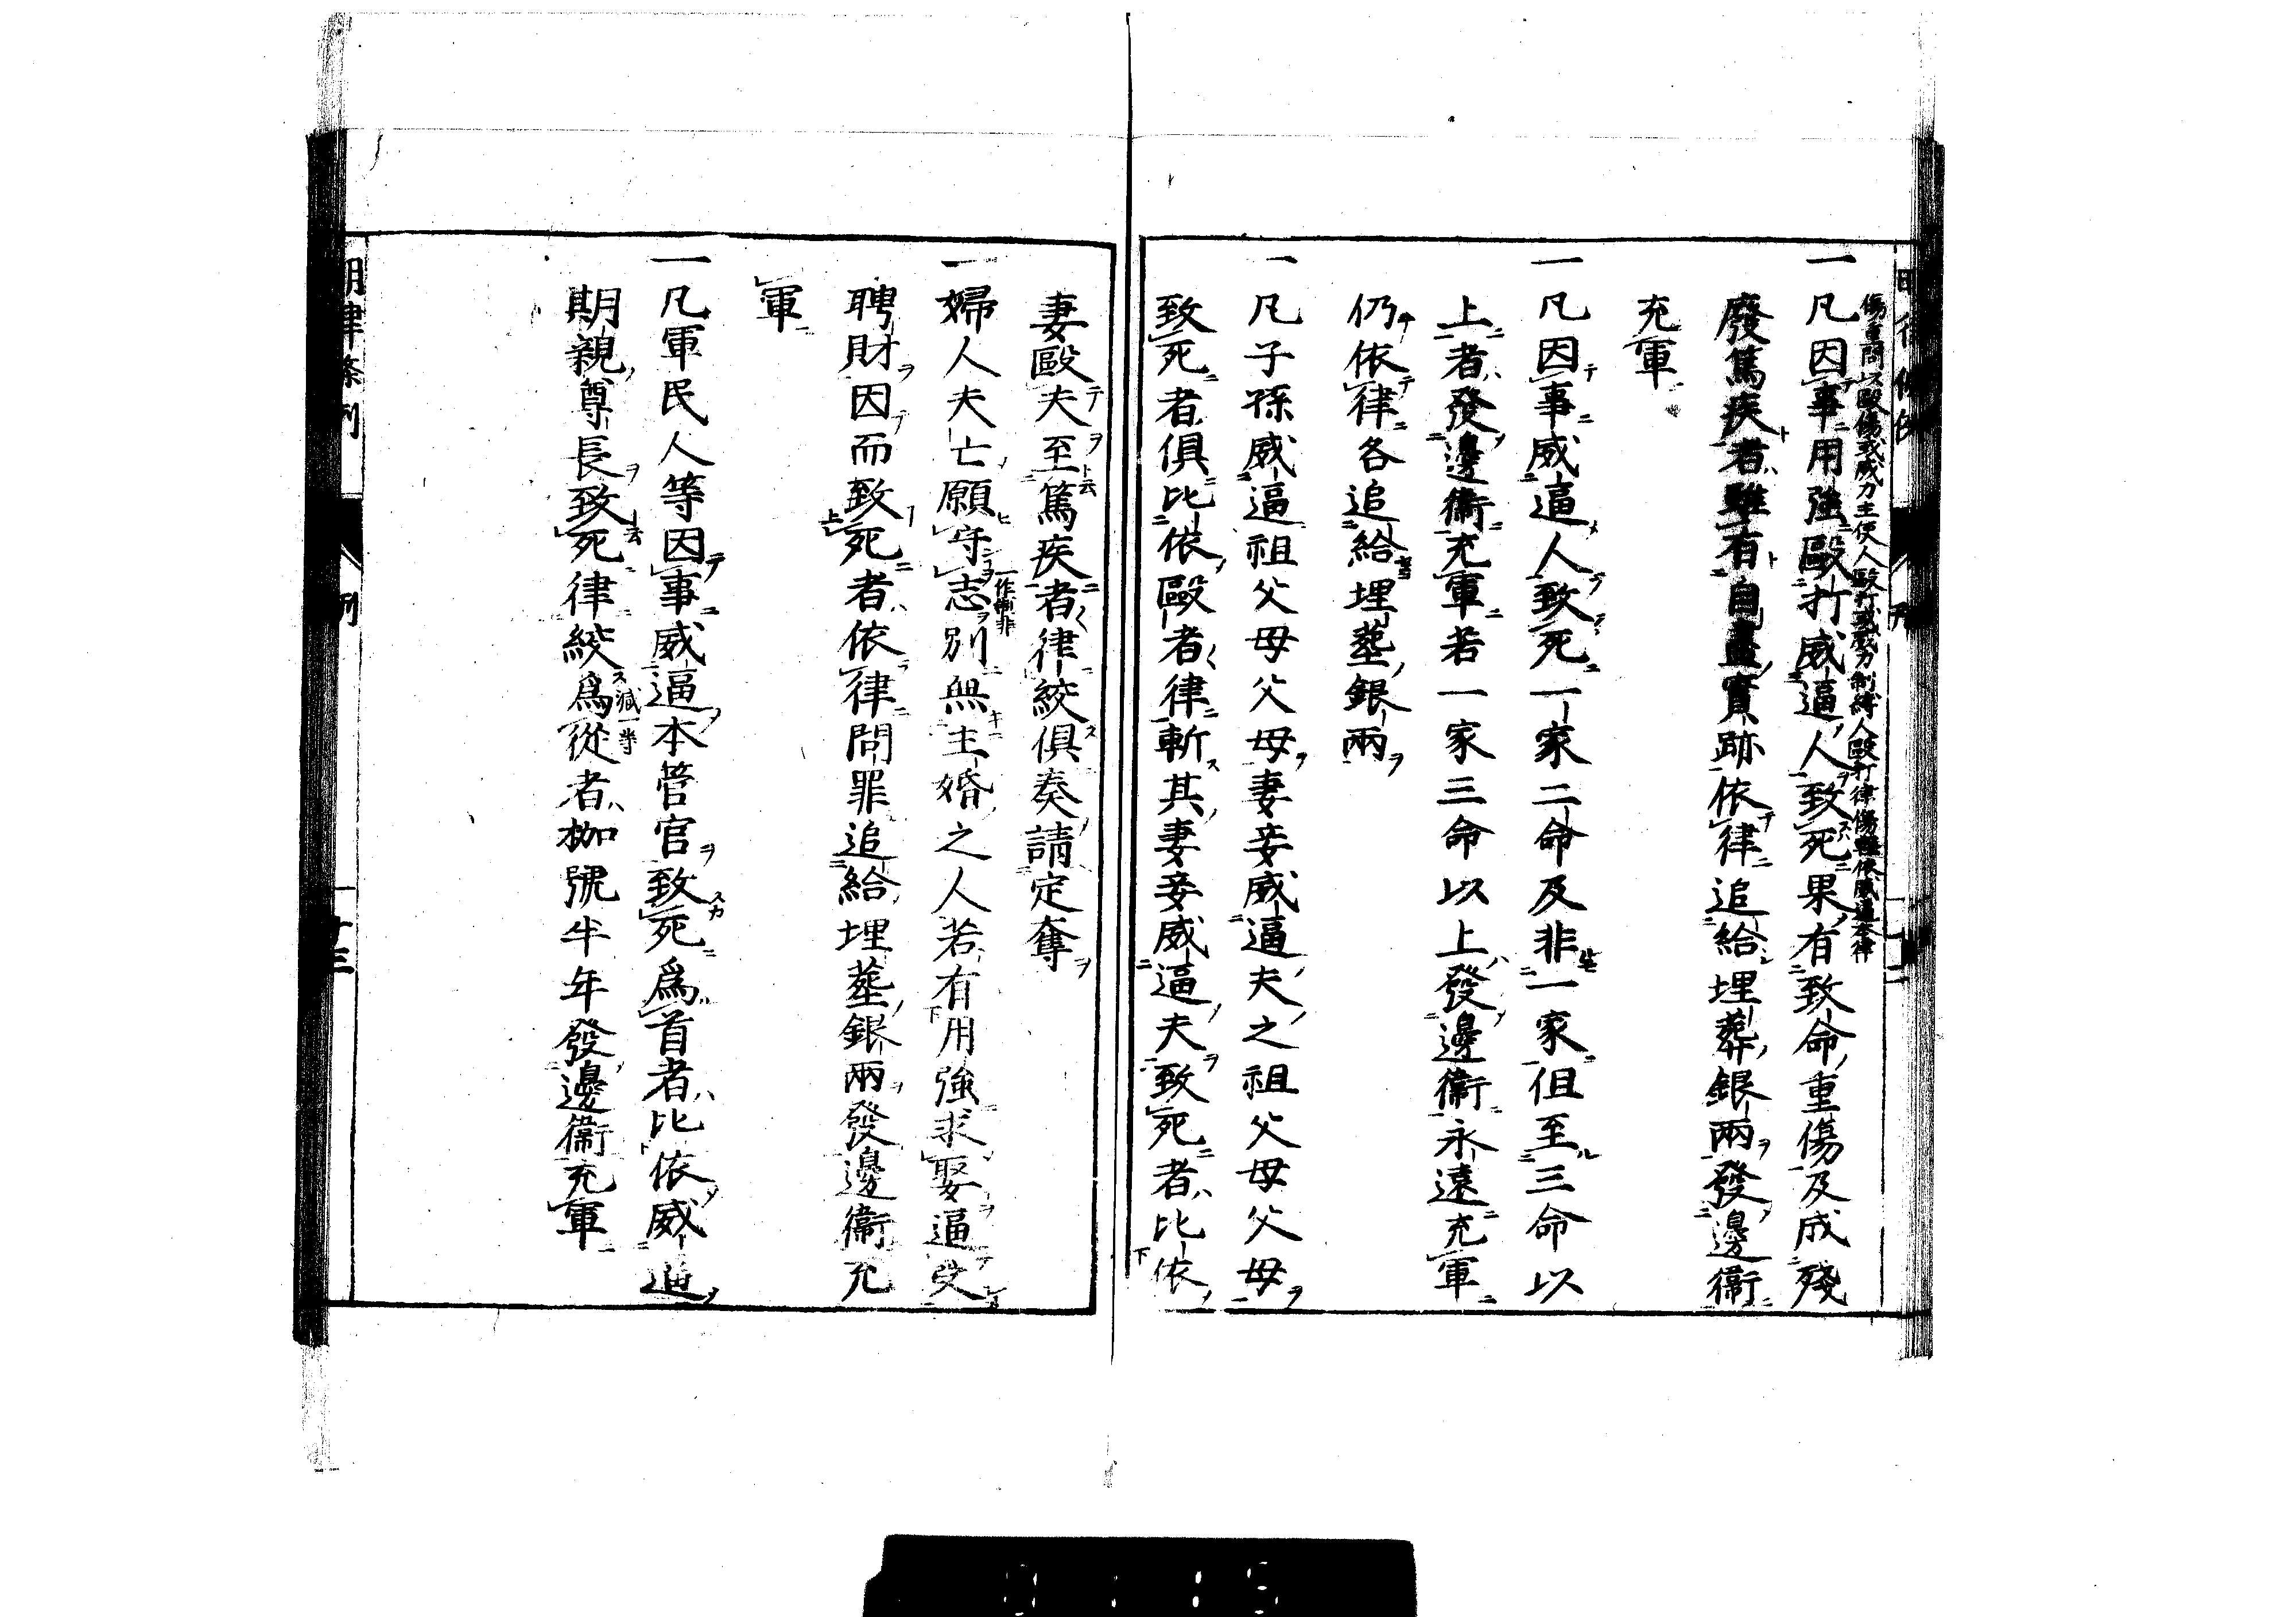 傷重問以毆傷或威力主使人毆打或威力制縛人毆打律傷輕依威逼本律
一凡因事用強毆打威逼人致死果有致命重傷及成殘
廢篤疾者雖有自盡實跡依律追給埋葬銀兩發邊衞
充軍
一凡因事威逼人致死一家二命及非一家但至三命以
上者發邊衞充軍若一家三命以上發邊衞永遠充軍
仍依律各追給埋葬銀兩
一凡子孫威逼祖父母父母妻妾威逼夫之祖父母父母
致死者俱比依毆者律斬其妻妾威逼夫致死者比依
妻毆夫至篤疾者律絞俱奏請定奪
一婦人夫亡願守志別無主婚之人若有用強求娶逼受
聘財因而致死者依律問罪追給埋葬銀兩發邊衞充
軍
一凡軍民人等因事威逼本管官致死爲首者比依威逼
期親尊長致死律絞爲從者枷號半年發邊衞充軍
明律條例
十三